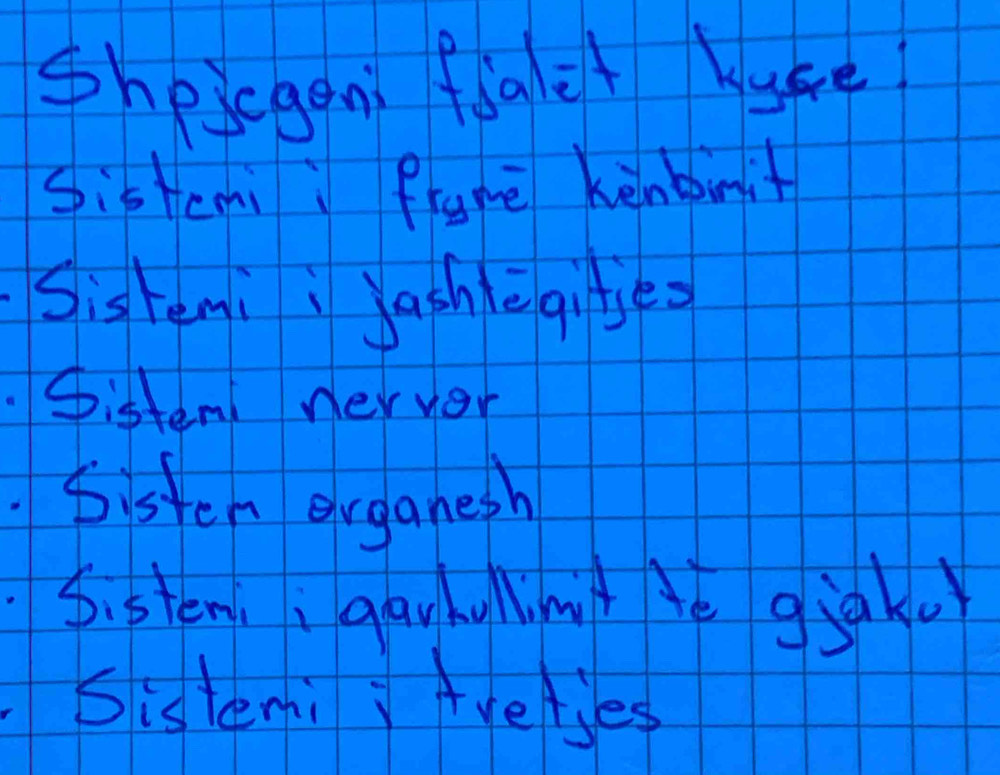 Shpjegoni fjalët kyçe:
Sistemi i frymē kēnbimit
· Sistemi i jashtēqitjes
· Sistemi nervor
· Sistem organesh
· Sistemi i qarkullimit tē gjakut
· Sistemi i tretjes